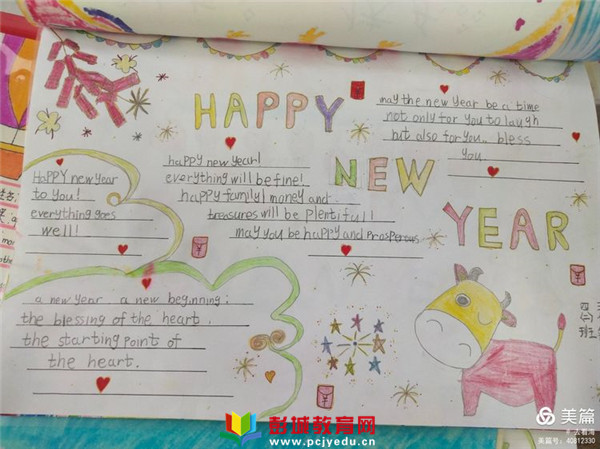 HAPPY
NEW
YEAR
may the new year be a time
not only for you to laugh
but also for you.. bless
you
happy new year!
everything will be fine!
happy family! money and
treasures will be plentiful!
may you be happy and prosperous
Happy new year
to you!
everything goes
well!
a new year a new beginning;
the blessing of the heart.
the starting point of
the heart.
彭诚教育网
www.pcjyedu.cn
美篇
美篇号:40812330